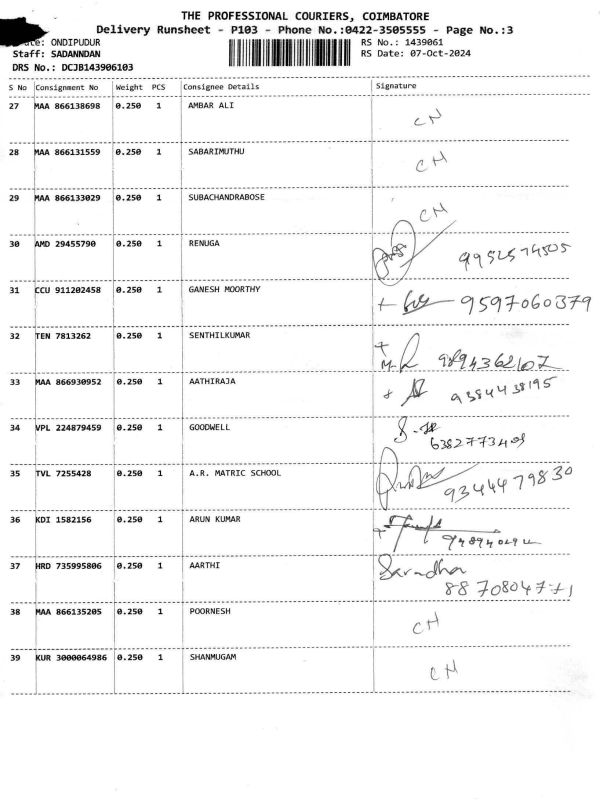 THE PROFESSIONAL COURIERS, COIMBATORE
Delivery Runsheet - P103 - Phone No.:0422-3505555 - Page No.:3
ONDIPUDUR RS No.: 1439061
Staff: SADANNDAN RS Date: 07-Oct-2024
DRS No.: DCJB143906103
S No Consignment No Weight PCS Consignee Details Signature
27 MAA 866138698 0.250 1 AMBAR ALI CN
28 MAA 866131559 0.250 1 SABARIMUTHU CH
29 MAA 866133029 0.250 1 SUBACHANDRABOSE CN
30 AMD 29455790 0.250 1 RENUGA 9952574505
31 CCU 911202458 0.250 1 GANESH MOORTHY 9597060379
32 TEN 7813262 0.250 1 SENTHILKUMAR 9894362107
33 MAA 866930952 0.250 1 AATHIRAJA 9384438195
34 VPL 224879459 0.250 1 GOODWELL
35 TVL 7255428 0.250 1 A.R. MATRIC SCHOOL 9344479830
36 KDI 1582156 0.250 1 ARUN KUMAR
37 HRD 735995806 0.250 1 AARTHI Saradha
38 MAA 866135205 0.250 1 POORNESH CH
39 KUR 3000064986 0.250 1 SHANMUGAM CH